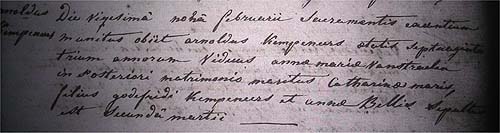 arnoldus Die vigesimâ nonâ februarii Sacramentis
Kempeneers munitus obiit arnoldus Kempeneers aetatis Septuaginta
trium annorum viduus annae mariae Vanstraelen
in posteriori matrimonio maritus Catharinae maris
filius godefridi Kempeneers et annae Bellis Sepultus
est Secundâ martii